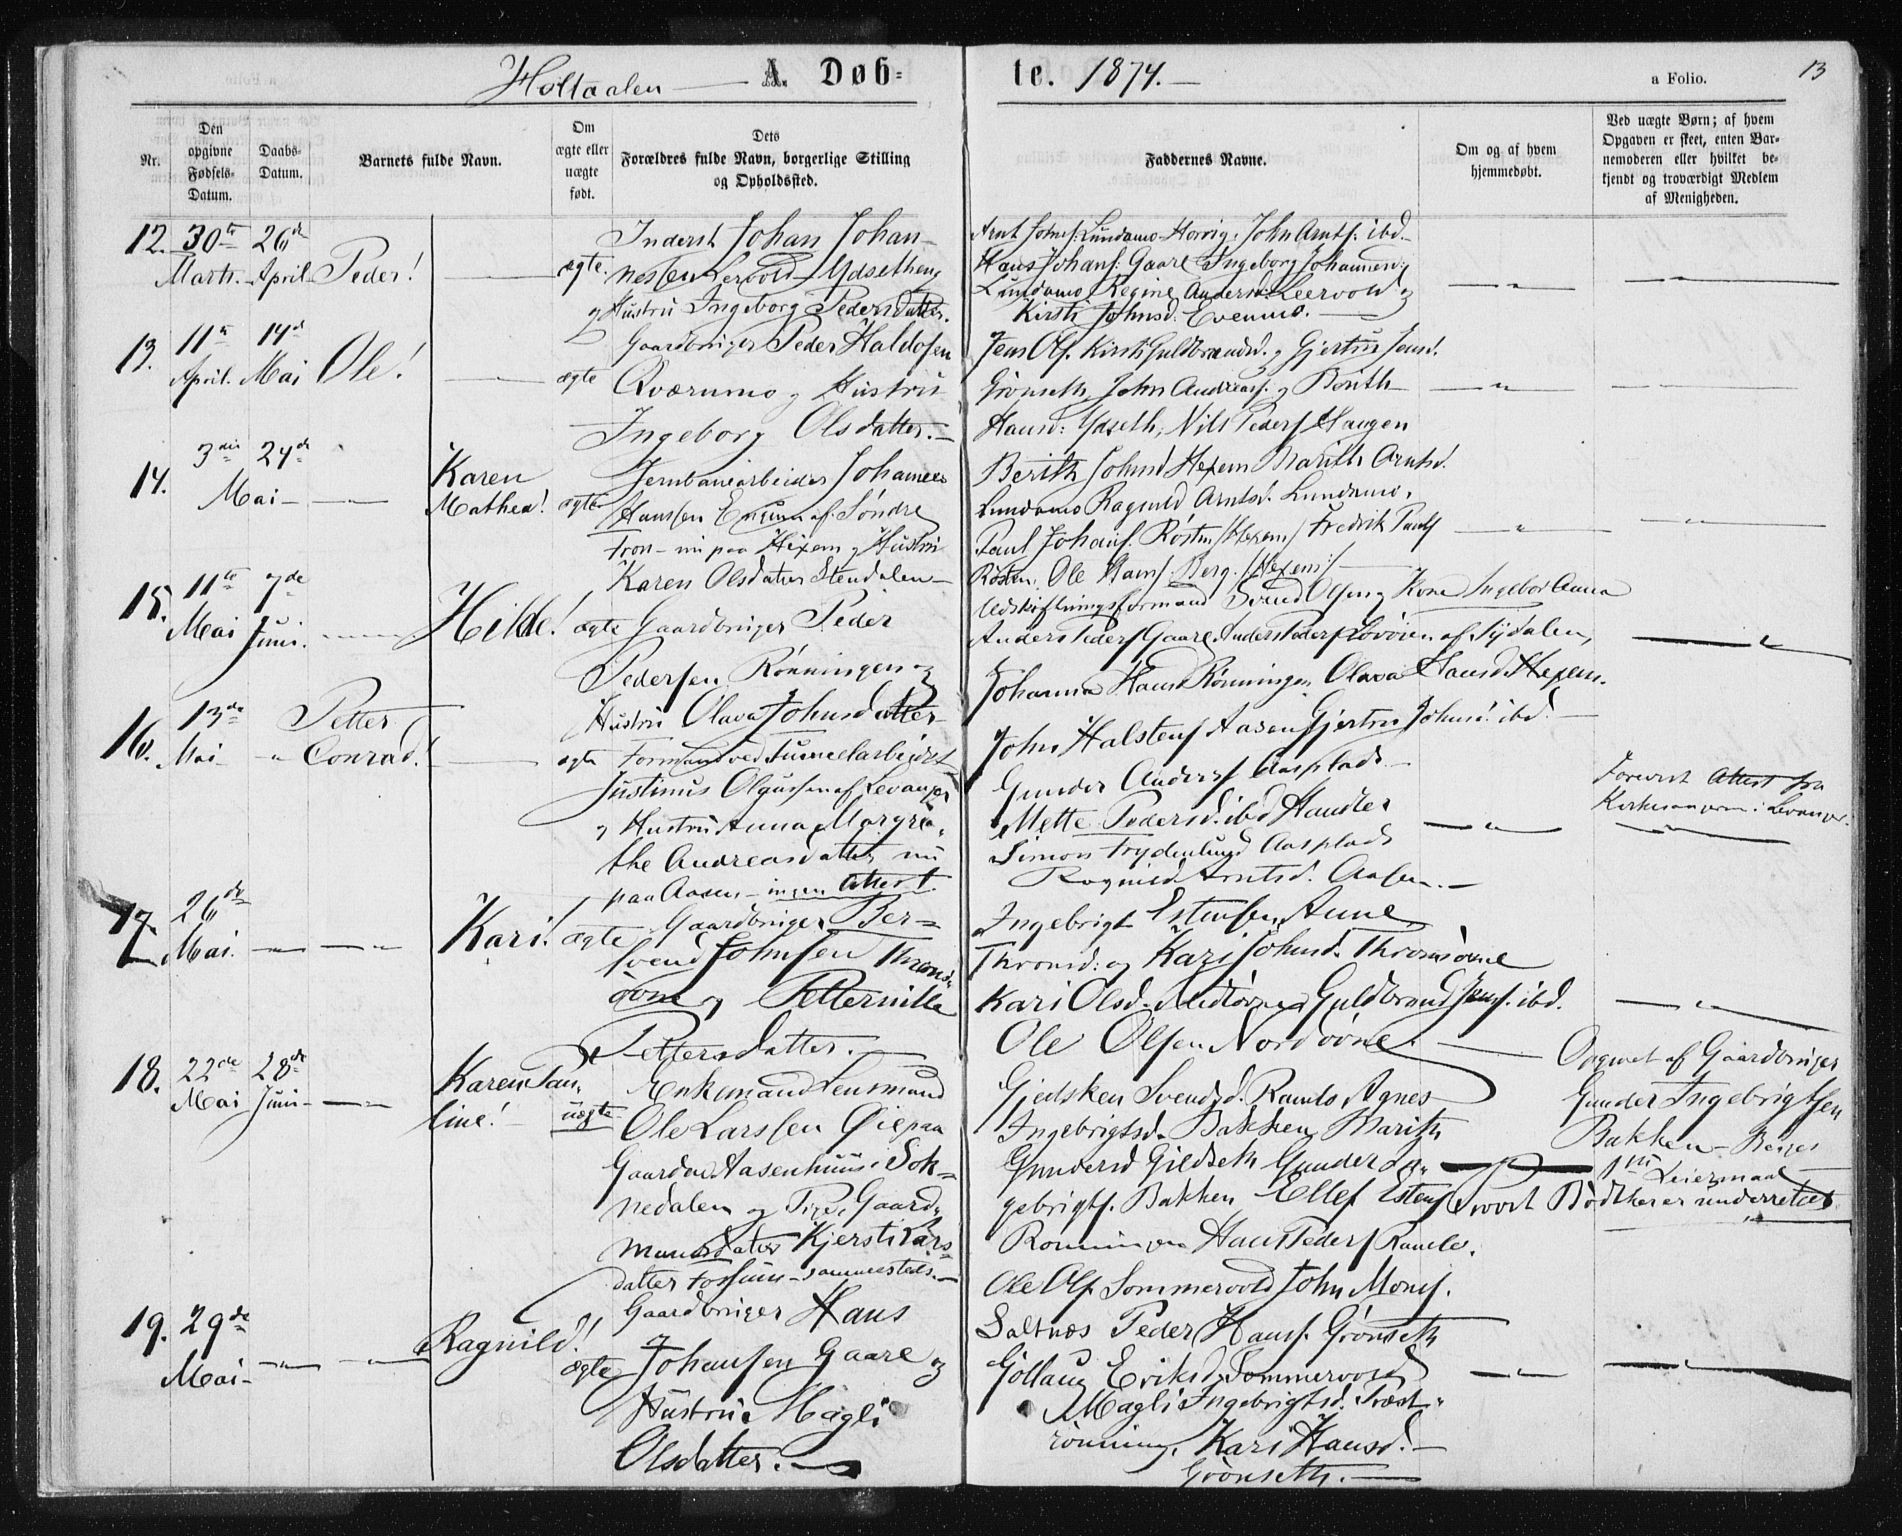 Holtaalen — A. Døb=
te. 1874. —
a Folio.
13
Nr.
Den opgivne Fødsels-Datum.
Daabs-Datum.
Barnets fulde Navn.
Om ægte eller uægte født.
Dets Forældres fulde Navn, borgerlige Stilling og Opholdssted.
Faddernes Navne.
Om og af hvem hjemmedøbt.
Ved uægte Børn; af hvem Opgaven er skeet, enten Barnemoderen eller hvilket bekjendt og troværdigt Medlem af Menigheden.
12. 30te Marts. 26de April Peder! ægte.
Inderst Johan Johan-
nesen Lervold Ydsetheng
og Hustru Ingeborg Pedersdatter.
Arnt Johns: Lundamo Horrig, John Arnts: ibd.
Hans Johans: Gaare Ingeborg Johannesd:
Lundamo Regine Andersd: Leervold og
Kirsti Johnsd. Evenmo.
13. 11te April. 14de Mai Ole! ægte
Gaardbruger Peder Haldosen
Qværnmo og Hustru
Ingeborg Olsdatter. —
Jens Ols. Kirsti Guldbrandsd. og Gjertru Jensd.
Grönseth, John Andreass. og Berith
Hansd: Ydseth, Nils Peders Haugen
14. 3die Mai 24de Karen Mathea! ægte
Jernbanearbeider Johannes
Hanssen Engum af Söndre
Tron — nu paa Hexem og Hustru
Karen Olsdatter Stendalen
Berith Johnsd Hexem Marith Arntsd.
Lundamo Ragnild Arntsd. Lundamo,
Paul Johans. Röstn /Hexem/ Fredrik Pauls
Rosten. Ole Hans. Berg. /Hexem/
15. 11te Mai 7de Juni. Hilde! ægte
Gaardbruger Peder
Pedersen Rönningen og
Hustru Olava Johnsdatter
Udskiftningsformand Svend Olsen og Kone Ingebor Anna
Anders Peders Gaare. Anders Peders Lövöien af Tydalen,
Johanna Hansd Rönningen Olava Hansd. Hexem.
16. 13de Mai Petter Conrad! ægte
Formand ved Tunnelarbeidet
Justinus Olaussen af Levanger
og Hustru Anna Margre-
the Andreasdatter nu
paa Aasen — ingen Attest.
John Halstens Aasen Gjertru Johnsd. ibd.
Gunder Anders Aasplads
Mette Pedersd. ibd Handler
Simon Trydenlund Aasplads
Ragnild Arntsd. Aasen. —
Forevist Attest fra
Kirkesangeren i Levanger.
17. 26de Mai. Kari! ægte
Gaardbruger Ber-
svend Johnsen Thrond-
övne og Petternille
Pettersdatter.
Ingebrigt Estensen, Anne
Thronsd: og Kari Johnsd. Thronsövne
Kari Olsd. Midtövne Guldbrand Jens. ibd.
Ole Olsen Nordövne.
18. 22de Mai 28de Juni Karen Pau-
line! uægte
Enkemand Lensmand
Ole Larssen Öie paa
Gaarden Aasenhuus i Sok-
nedalen og Pige, Gaard-
mandsdatter Kjersti Lars-
datter Fossum — sammesteds. —
Gjedsken Svendsd. Ramlo, Agnes
Ingebrigtsd. Bakken, Marith
Gundersd Gildseth Gunder In-
gebrigts. Bakken Ellef Estens
Ronningen Hans Peders Ramlo.
Ole Ols Sommervold John Mons.
Opgivet af Gaardbruger
Gunder Ingebrigtsen
Bakken — Begges
1ste Leiermaal
19. 29de Mai Ragnild! ægte
Gaardbruger Hans
Johansen Gaare og
Hustru Magli
Olsdatter.
Saltnæs Peder Hans. Grönseth
Göllaug Eriksd. Sommervold
Magli Ingebrigtsd. Præst-
rönning. Kari Hansd. —
Grönseth. —